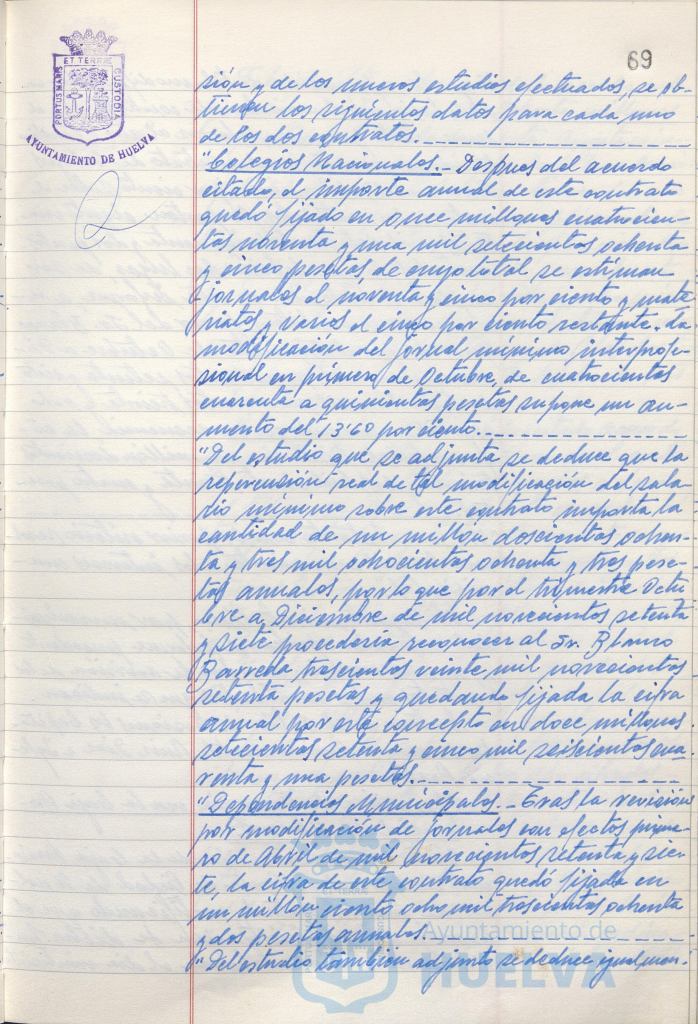 69
ET TERRAE
PORTUS MARIS
CUSTODIA
AYUNTAMIENTO DE HUELVA
sión y de los nuevos estudios efectuados, se ob-
tienen los siguientes datos para cada uno
de los dos contratos.
"Colegios Nacionales.- Despues del acuerdo
citado, el importe anual de este contrato
quedó fijado en once millones cuatrocien-
tas noventa y una mil setecientas ochenta
y cinco pesetas, de cuyo total se estiman
jornales el noventa y cinco por ciento y mate-
riales y varios el cinco por ciento restante. La
modificación del jornal mínimo interprofe-
sional en primero de Octubre, de cuatrocientas
cuarenta a quinientas pesetas supone un au-
mento del 13'60 por ciento.
"Del estudio que se adjunta se deduce que la
repercusión real de tal modificación del sala-
rio mínimo sobre este contrato importa la
cantidad de un millón doscientas ochen-
ta y tres mil ochocientas ochenta y tres pese-
tas anuales, por lo que por el trimestre Octu
bre a Diciembre de mil novecientos setenta
y siete procedería reconocer al Sr. Blanco
Barreda trescientas veinte mil novecientas
setenta pesetas y quedando fijada la cifra
anual por este concepto en doce millones
setecientas setenta y cinco mil seiscientas cua-
renta y una pesetas.
"Dependencias Municipales.- Tras la revisión
por modificación de jornales con efectos prime-
ro de Abril de mil novecientos setenta y sie-
te, la cifra de este contrato quedó fijada en
un millón ciento ocho mil trescientas ochenta
y dos pesetas anuales.
"Del estudio también adjunto se deduce igualmen-
Ayuntamiento de
HUELVA